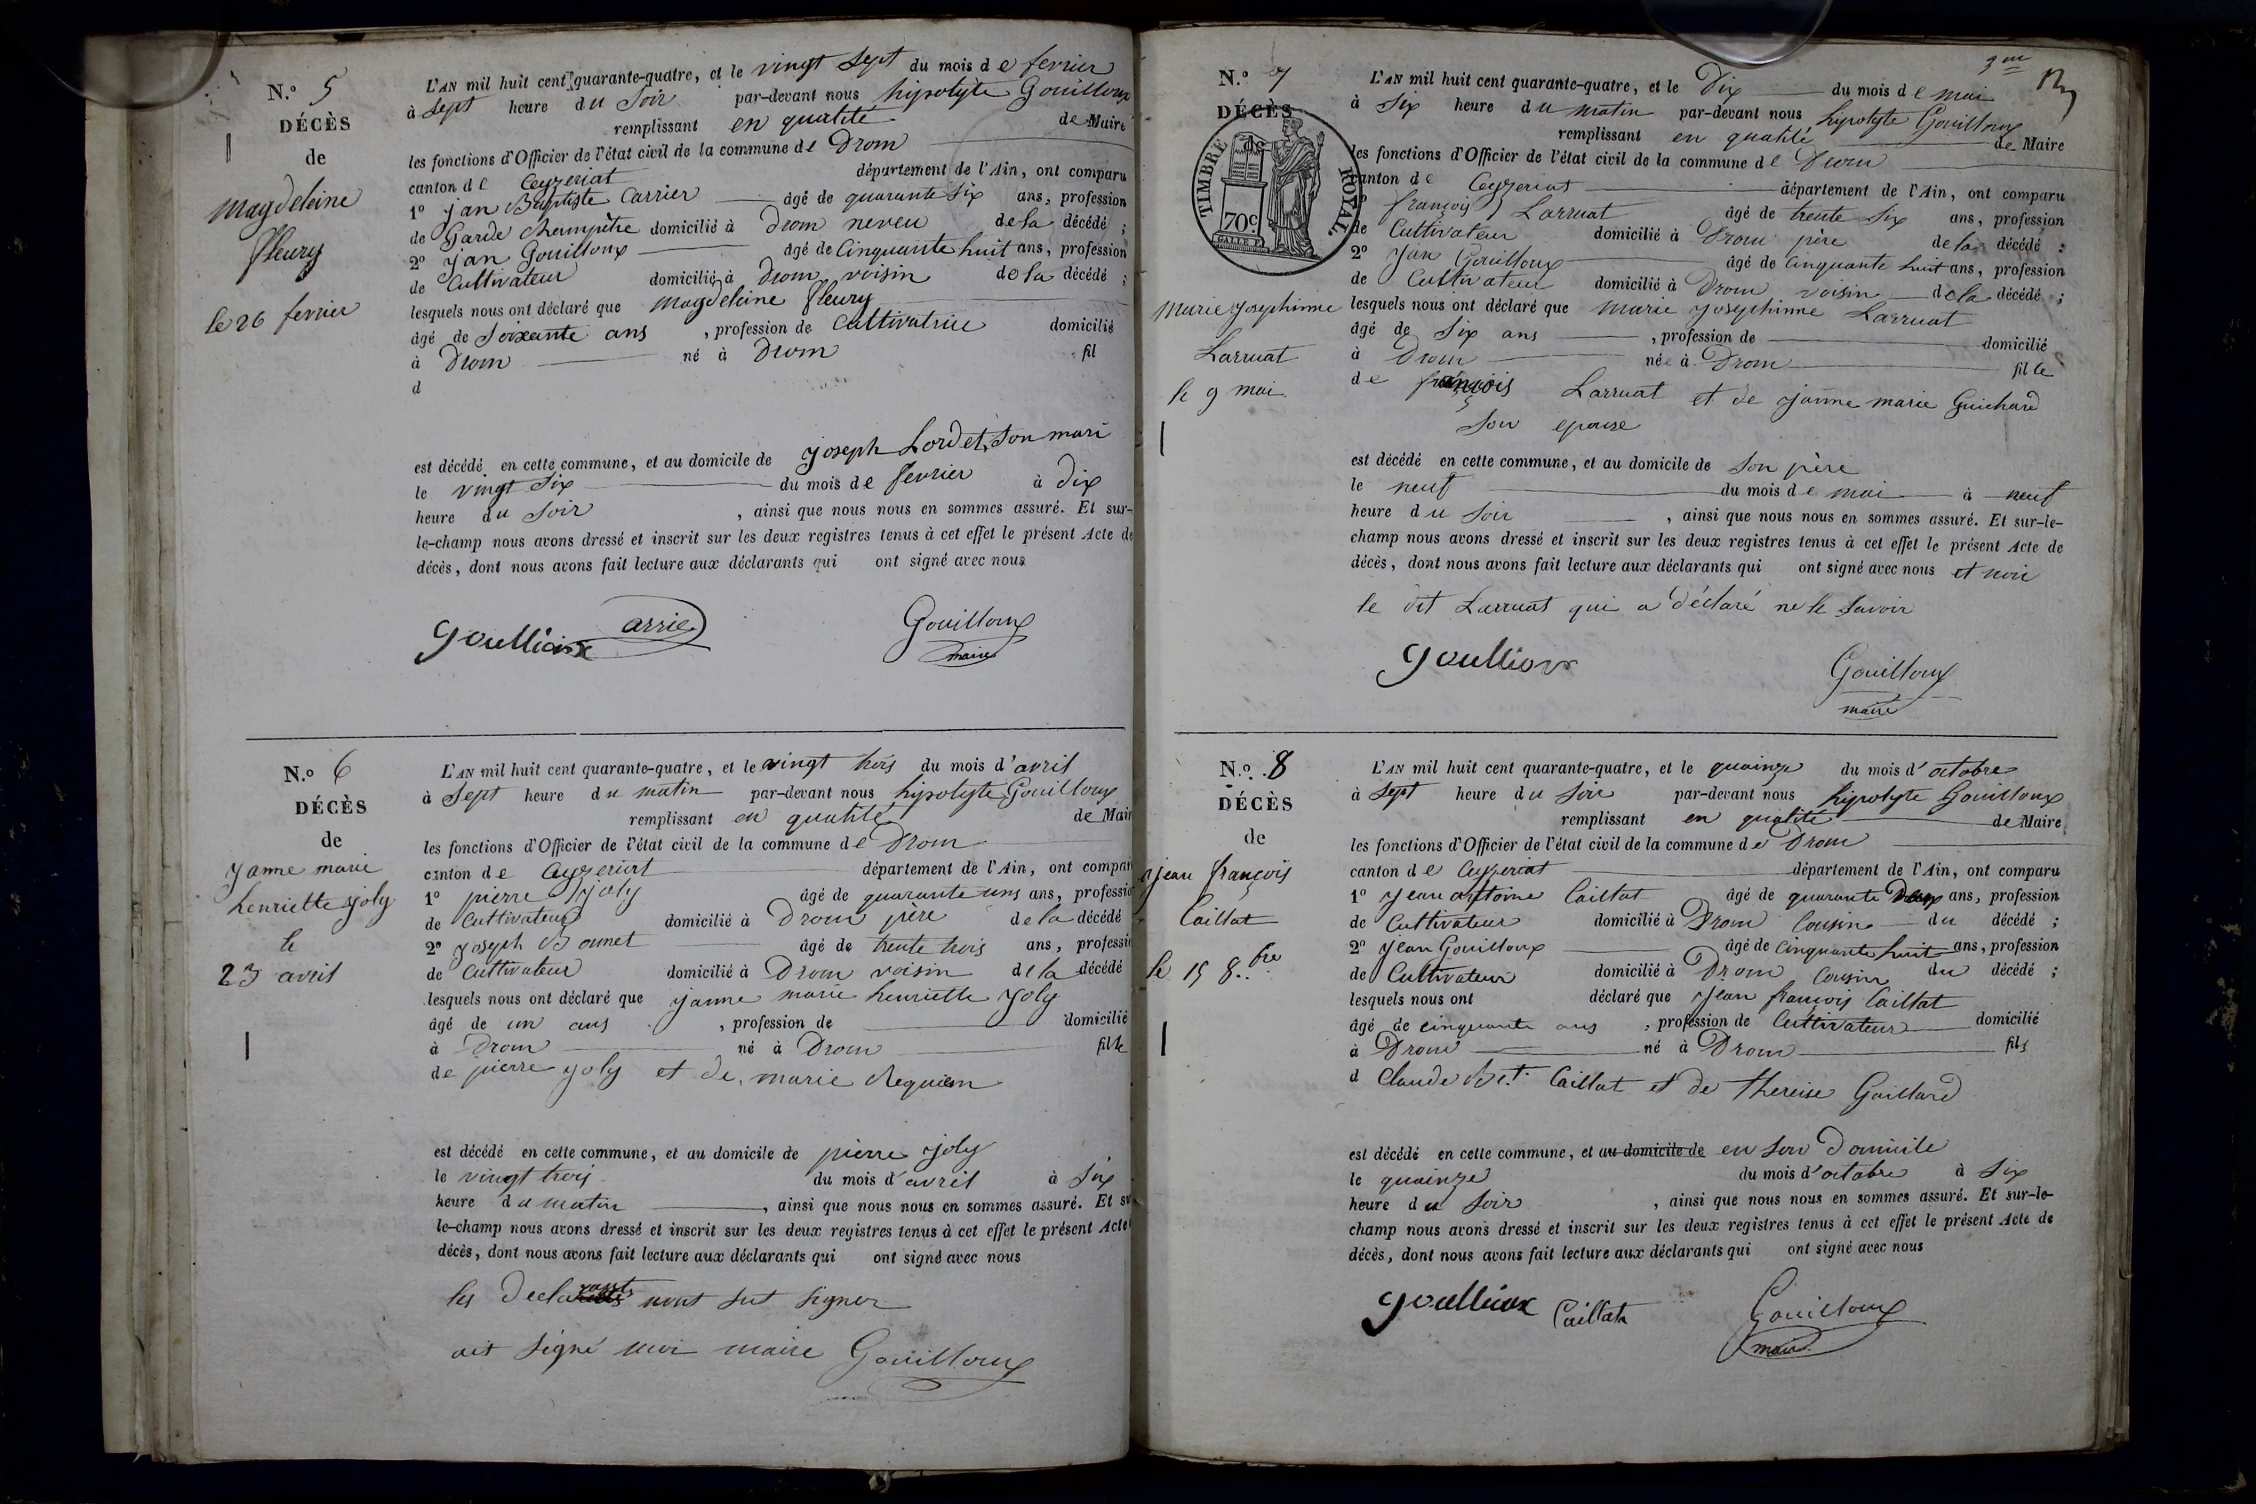 N.º 5
DÉCÈS
de
Magdeleine
fleury
le 26 fevrier
L'AN mil huit cent quarante-quatre, et le vingt sept du mois de fevrier
à sept heure du soir par-devant nous hipolyte Gouilloux
remplissant en qualité de Maire
les fonctions d'Officier de l'état civil de la commune de Drom
canton de Ceyzeriat département de l'Ain, ont comparu
1º jan Baptiste Carrier âgé de quarante six ans, profession
de Garde champêtre domicilié à Drom neveu de la décédé ;
2º jan Gouilloux âgé de Cinquante huit ans, profession
de Cultivateur domicilié à Drom voisin de la décédé ;
lesquels nous ont déclaré que Magdeleine fleury
âgé de soixante ans , profession de Cultivatrice domicilié
à Drom né à Drom fil
d
est décédé en cette commune, et au domicile de joseph Lordet, son mari
le vingt six du mois de fevrier à dix
heure du soir , ainsi que nous nous en sommes assuré. Et sur-
le-champ nous avons dressé et inscrit sur les deux registres tenus à cet effet le présent Acte de
décès, dont nous avons fait lecture aux déclarants qui ont signé avec nous
goullioux arrier Gouilloux
maire
N.º 6
DÉCÈS
de
janne marie
henriette joly
le
23 avril
L'AN mil huit cent quarante-quatre, et le vingt trois du mois d'avril
à sept heure du matin par-devant nous hipolyte Gouilloux
remplissant en qualité de Mair
les fonctions d'Officier de l'état civil de la commune de Drom
canton de Ceyzeriat département de l'Ain, ont compar
1º pierre joly âgé de quarante uns ans, professio
de Cultivateur domicilié à Drom père de la décédé
2º joseph Bonnet âgé de trente trois ans, professio
de Cultivateur domicilié à Drom voisin de la décédé
lesquels nous ont déclaré que janne marie henriette joly
âgé de un ans , profession de domicilié
à Drom né à Drom fille
de pierre joly et de marie Requiem
est décédé en cette commune, et au domicile de pierre joly
le vingt trois du mois d'avril à six
heure du matin , ainsi que nous nous en sommes assuré. Et su
le-champ nous avons dressé et inscrit sur les deux registres tenus à cet effet le présent Acte
décès, dont nous avons fait lecture aux déclarants qui ont signé avec nous
les declarants nont sut signer
ait signé moi maire Gouilloux
3me
N.º 7
DÉCÈS
de
TIMBRE ROYAL.
70c
Marie josephinne
Larruat
le 9 mai
L'AN mil huit cent quarante-quatre, et le Dix du mois de mai
à six heure du matin par-devant nous hipolyte Gouilloux
remplissant en qualité de Maire
les fonctions d'Officier de l'état civil de la commune de Drom
canton de Ceyzeriat département de l'Ain, ont comparu
françois Larruat âgé de trente six ans, profession
de Cultivateur domicilié à Drom père de la décédé ;
2º jan Gouilloux âgé de Cinquante huit ans, profession
de Cultivateur domicilié à Drom voisin de la décédé ;
lesquels nous ont déclaré que marie josephinne Larruat
âgé de six ans , profession de domicilié
à Drom née à Drom fille
de françois Larruat et de janne marie Guichard
son epouse
est décédé en cette commune, et au domicile de son père
le neuf du mois de mai à neuf
heure du soir , ainsi que nous nous en sommes assuré. Et sur-le-
champ nous avons dressé et inscrit sur les deux registres tenus à cet effet le présent Acte de
décès, dont nous avons fait lecture aux déclarants qui ont signé avec nous et non
le dit Larruat qui a déclaré ne le savoir
goullioux Gouilloux
maire
N.º 8
DÉCÈS
de
jean françois
Caillat
le 15 8.bre
L'AN mil huit cent quarante-quatre, et le quainze du mois d'octobre
à sept heure du soir par-devant nous hipolyte Gouilloux
remplissant en qualité de Maire
les fonctions d'Officier de l'état civil de la commune de Drom
canton de Ceyzeriat département de l'Ain, ont comparu
1º jean antoine Caillat âgé de quarante Deux ans, profession
de Cultivateur domicilié à Drom Cousin du décédé ;
2º jean Gouilloux âgé de Cinquante huit ans, profession
de Cultivateur domicilié à Drom cousin du décédé ;
lesquels nous ont déclaré que jean françois Caillat
âgé de cinquante ans , profession de Cultivateur domicilié
à Drom né à Drom fils
d Claude Bt. Caillat et de thereise Gaillard
est décédé en cette commune, et au domicile de en son Domicile
le quainze du mois d'octobre à six
heure du soir , ainsi que nous nous en sommes assuré. Et sur-le-
champ nous avons dressé et inscrit sur les deux registres tenus à cet effet le présent Acte de
décès, dont nous avons fait lecture aux déclarants qui ont signé avec nous
goullioux Caillat Gouilloux
maire